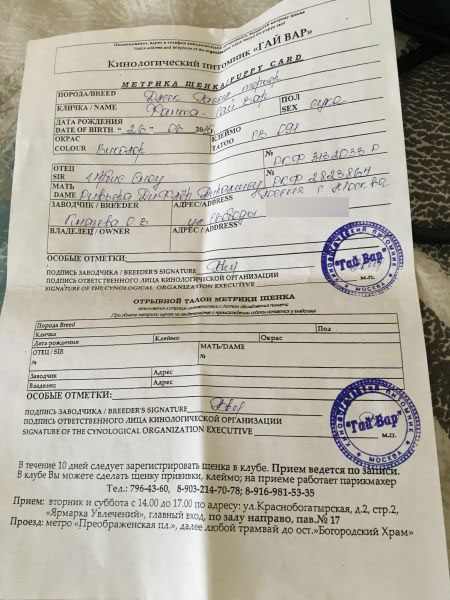 Наименование, адрес и телефон кинологической организации, выдавшей метрику щенка
Name and address and telephone of the organization which issued the puppy card
Кинологический питомник «ГАЙ ВАР»
МЕТРИКА ЩЕНКА/PUPPY CARD
ПОРОДА/BREED Джек Рассел терьер
КЛИЧКА / NAME Фанта Гай Вар ПОЛ SEX сука
ДАТА РОЖДЕНИЯ
DATE OF BIRTH "26" 06 20 КЛЕЙМО TATOO 091
ОКРАС
COLOUR Биколор
ОТЕЦ
SIR № РКФ
МАТЬ
DAME № РКФ 2823864
ЗАВОДЧИК / BREEDER АДРЕС/ADDRESS г. Москва
С.В.
ВЛАДЕЛЕЦ / OWNER АДРЕС / ADDRESS
ОСОБЫЕ ОТМЕТКИ:
ПОДПИСЬ ЗАВОДЧИКА / BREEDER'S SIGNATURE
ПОДПИСЬ ОТВЕТСТВЕННОГО ЛИЦА КИНОЛОГИЧЕСКОЙ ОРГАНИЗАЦИИ
SIGNATURE OF THE CYNOLOGICAL ORGANIZATION EXECUTIVE
М.П.
КИНОЛОГИЧЕСКИЙ ПИТОМНИК "Гай Вар" МОСКВА
ОТРЫВНОЙ ТАЛОН МЕТРИКИ ЩЕНКА
Порода Breed
Кличка Пол
Дата рождения Клеймо Окрас
ОТЕЦ / SIR МАТЬ/DAME
№ №
Заводчик Адрес
Владелец Адрес
ОСОБЫЕ ОТМЕТКИ:
ПОДПИСЬ ЗАВОДЧИКА / BREEDER'S SIGNATURE
ПОДПИСЬ ОТВЕТСТВЕННОГО ЛИЦА КИНОЛОГИЧЕСКОЙ ОРГАНИЗАЦИИ
SIGNATURE OF THE CYNOLOGICAL ORGANIZATION EXECUTIVE
М.П.
КИНОЛОГИЧЕСКИЙ ПИТОМНИК "Гай Вар" МОСКВА
В течение 10 дней следует зарегистрировать щенка в клубе. Прием ведется по записи.
В клубе Вы можете сделать щенку прививки, клеймо; на приеме работает парикмахер
Тел.: 796-43-60, 8-903-214-70-78; 8-916-981-53-35
Прием: вторник и суббота с 14.00 до 17.00 по адресу: ул.Краснобогатырская, д.2, стр.2,
«Ярмарка Увлечений», главный вход, по залу направо, пав.№ 17
Проезд: метро «Преображенская пл.», далее любой трамвай до ост.»Богородский Храм»